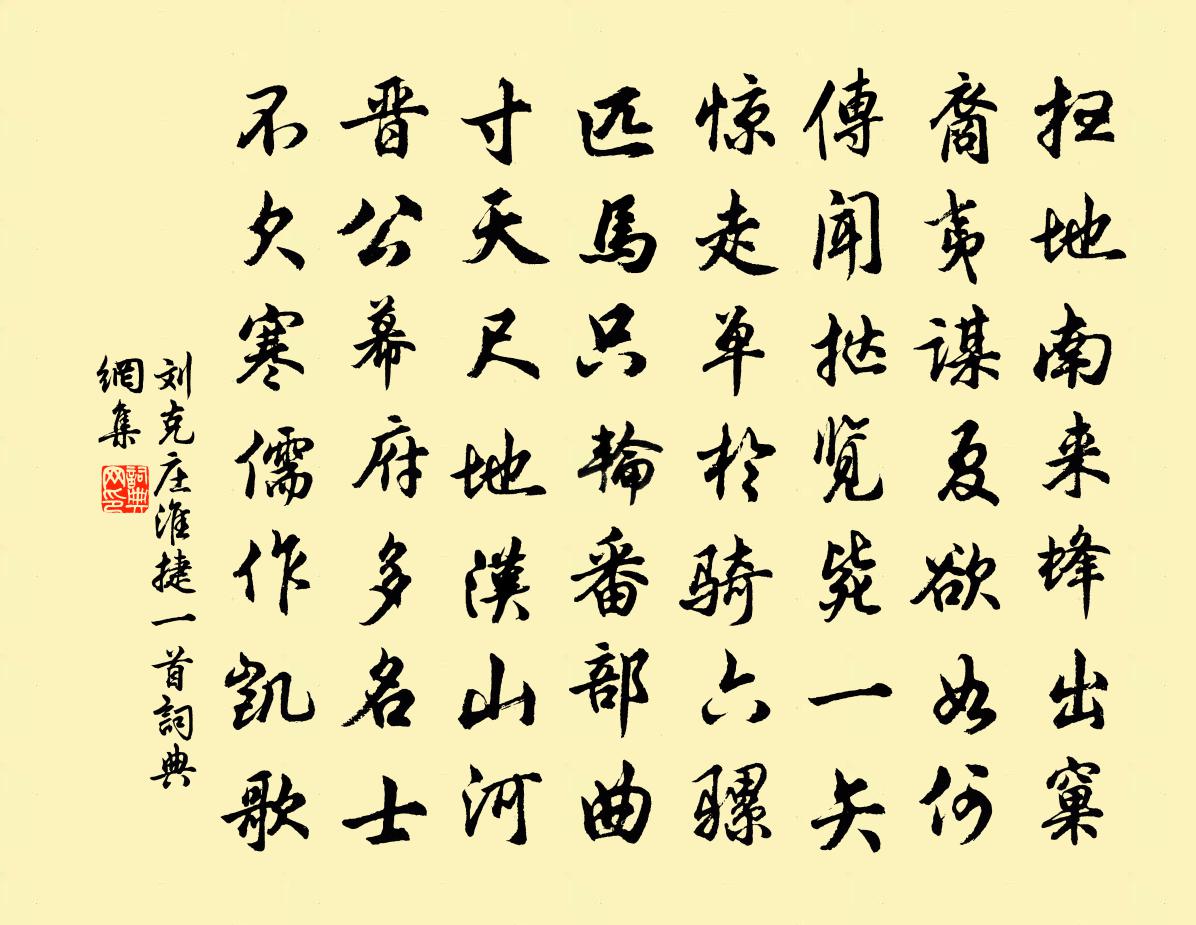 扫地南来蜂出窠
裔夷谋夏欲如何
傳聞挞览毙一矢
惊走单於騎六騾
匹馬只輪番部曲
寸天尺地漢山河
晋公幕府多名士
不欠寒儒作凯歌
刘克庄淮捷一首詞典
網集
詞典网印